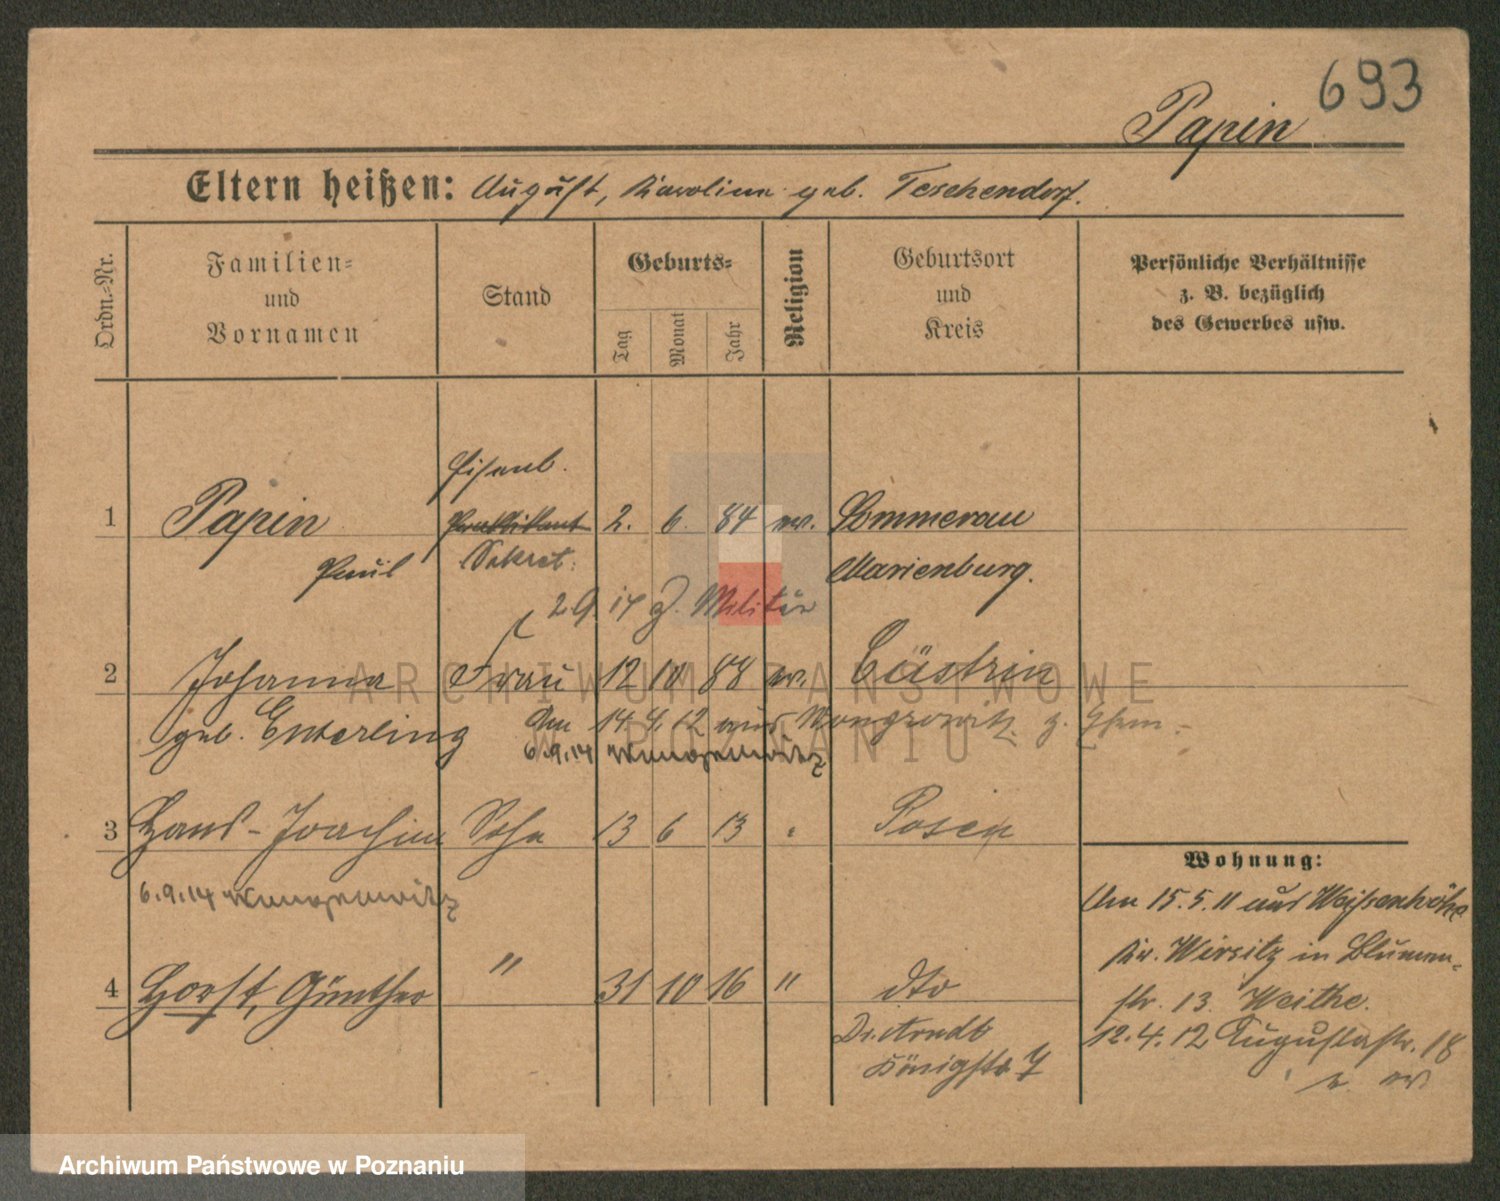 693
Papin
Eltern heißen: August, Karoline geb. Teschendorf.
Ordn.-Nr.
Familien- und Vornamen
Stand
Geburts-
Tag
Monat
Jahr
Religion
Geburtsort und Kreis
Persönliche Verhältnisse
z. B. bezüglich
des Gewerbes usw.
Eisenb.
1 Papin Praktikant 2. 6. 84 ev. Sommerau
Paul Sekret. Marienburg.
29. 17 z. Militär
2 Johanna Frau 12 10 88 ev. Cüstrin
geb. Enterling Am 14. 4. 12 aus Wongrowitz z. Ehem.
6.9.14
3 Hans-Joachim Sohn 13 6 13 " Posen
6.9.14
4 Horst, Günther " 31 10 16 " dto
Dr. Arndt
Königstr.
Wohnung:
Am 15.5.11 aus Weißenhöhe
Kr. Wirsitz in Blumen-
str. 13. Weithe.
12.4.12 Augustastr. 18
ARCHIWUM PAŃSTWOWE
W POZNANIU
Archiwum Państwowe w Poznaniu